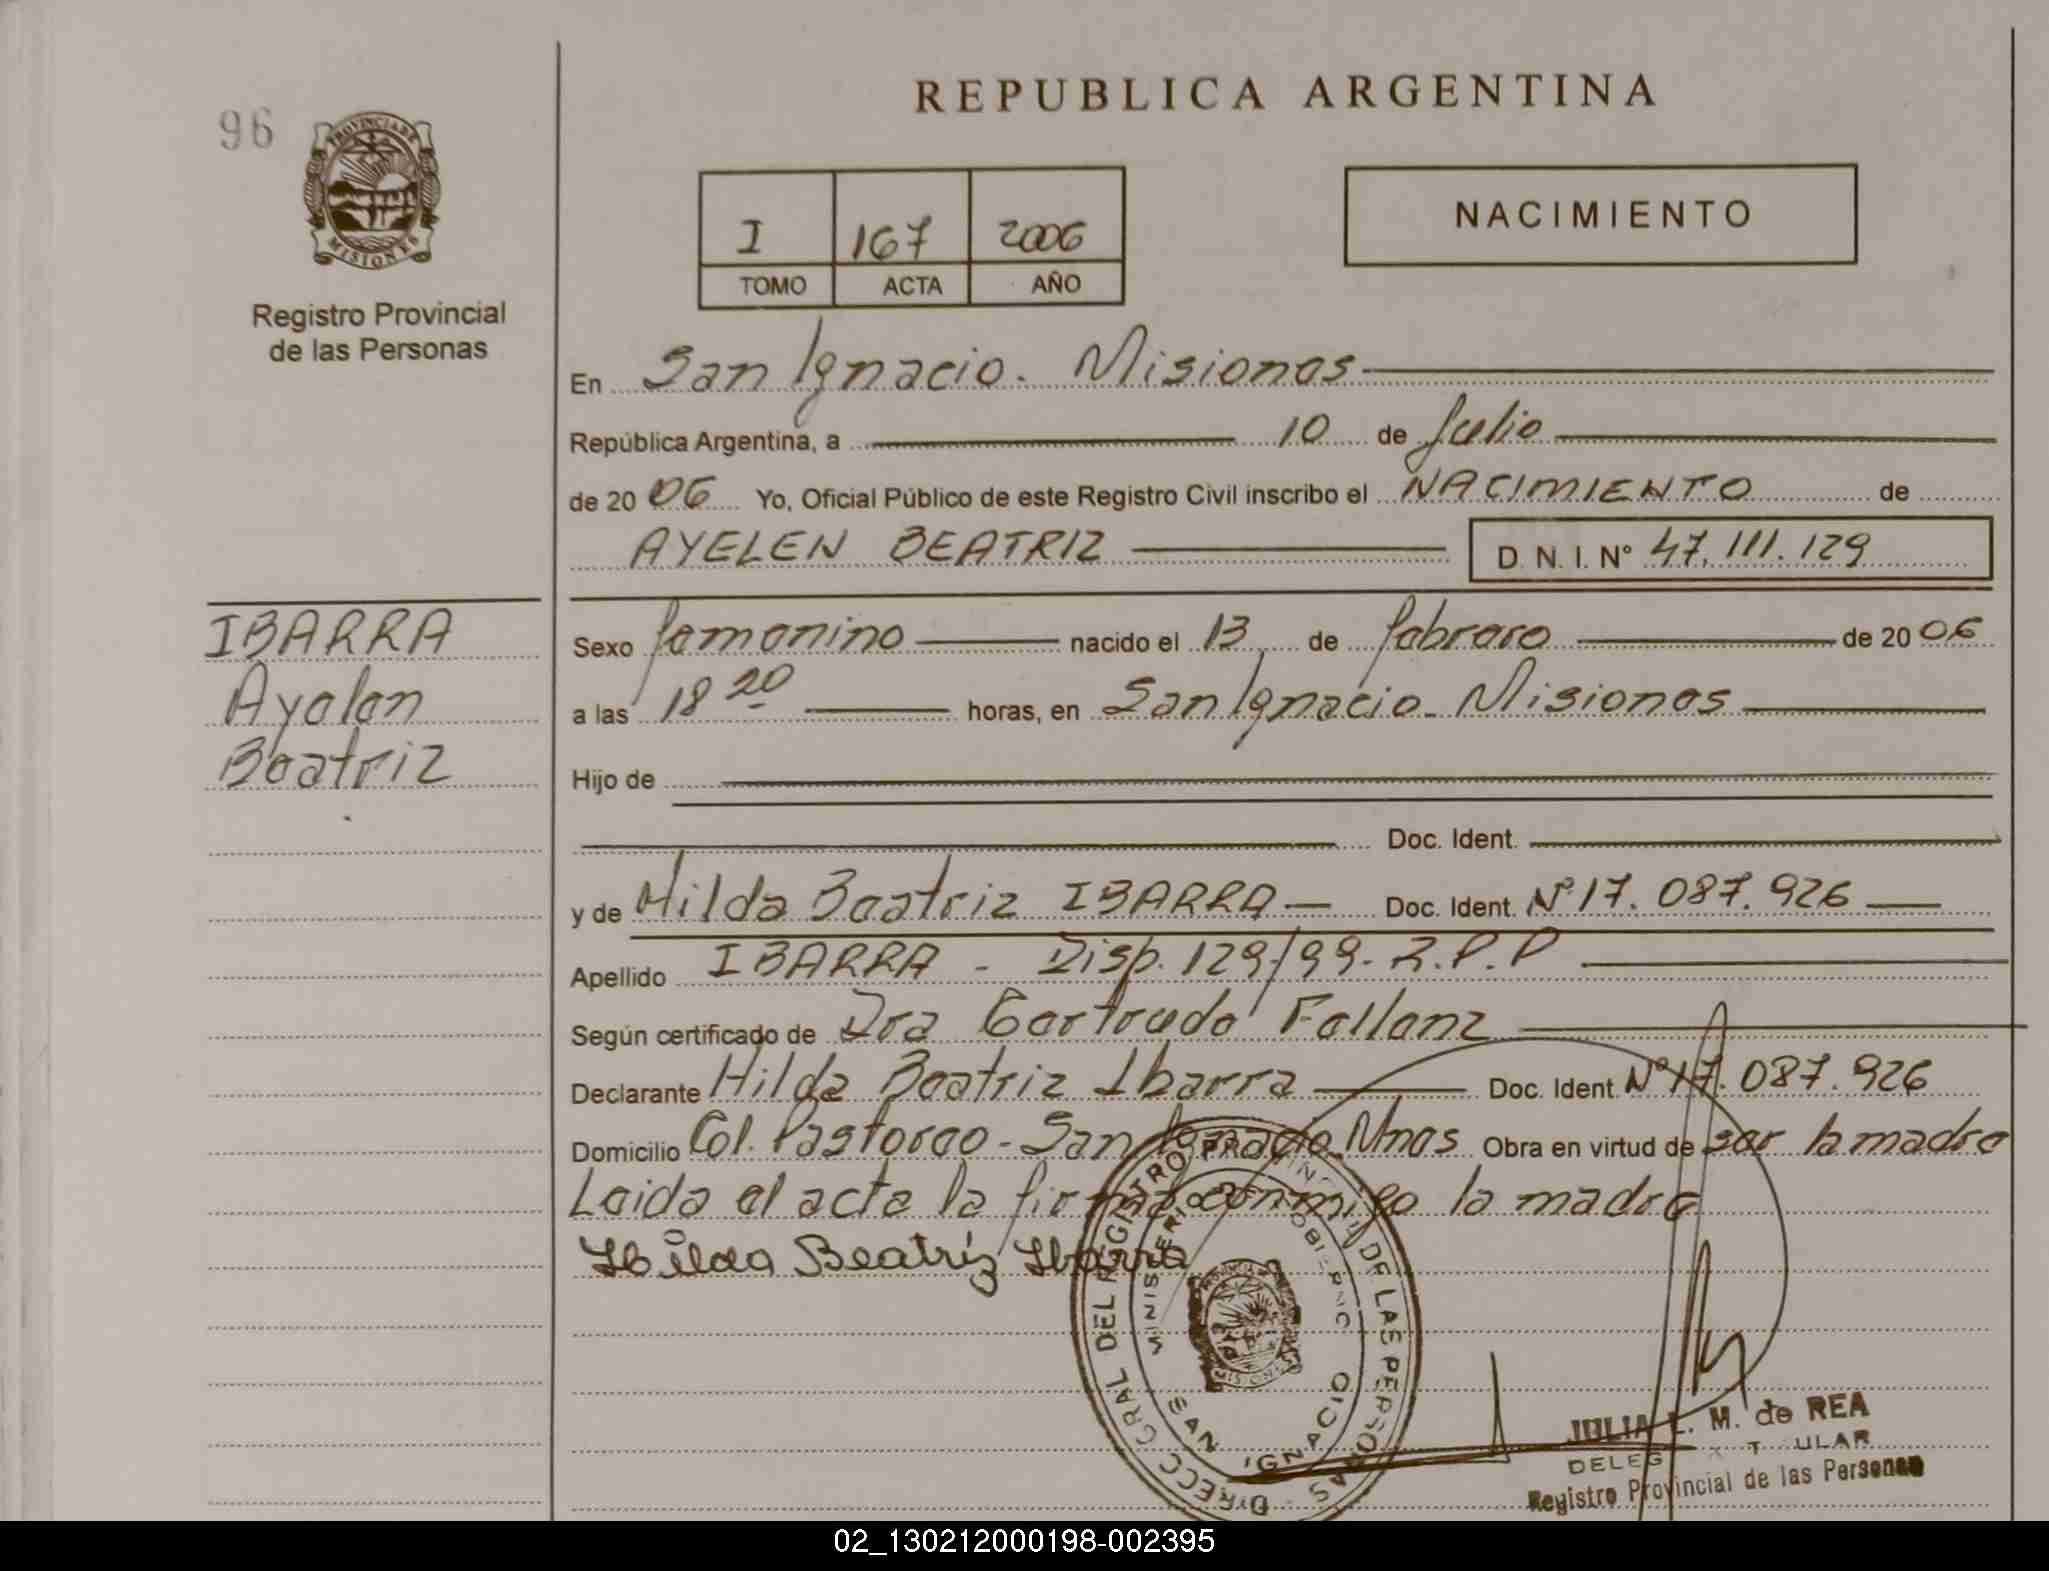 REPUBLICA ARGENTINA
96
PROVINCIA DE
MISIONES
Registro Provincial
de las Personas
I 167 2006
TOMO ACTA AÑO
NACIMIENTO
En San Ignacio. Misiones
República Argentina, a 10 de Julio
de 20 06 Yo, Oficial Público de este Registro Civil inscribo el NACIMIENTO de
AYELEN BEATRIZ D. N. I. N° 47.111.129
IBARRA
Ayelen
Beatriz
Sexo femenino nacido el 13 de febrero de 20 06
a las 18 20 horas, en San Ignacio - Misiones
Hijo de
Doc. Ident.
y de Hilda Beatriz IBARRA Doc. Ident. N° 17.087.926
Apellido IBARRA - Disp. 129/99 - R.P.P
Según certificado de Dra Gertrude Fallanz
Declarante Hilda Beatriz Ibarra Doc. Ident. N° 17.087.926
Domicilio Col. Pastoreo - San Ignacio. Mnes Obra en virtud de ser la madre
Leida el acta la firma conmigo la madre
Hilda Beatriz Ibarra
DIRECC GRAL DEL REGISTRO PROVINCIAL DE LAS PERSONAS
MINISTERIO DE GOBIERNO
SAN IGNACIO
JULIA L. M. de REA
Registro Provincial de las Personas
02_130212000198-002395